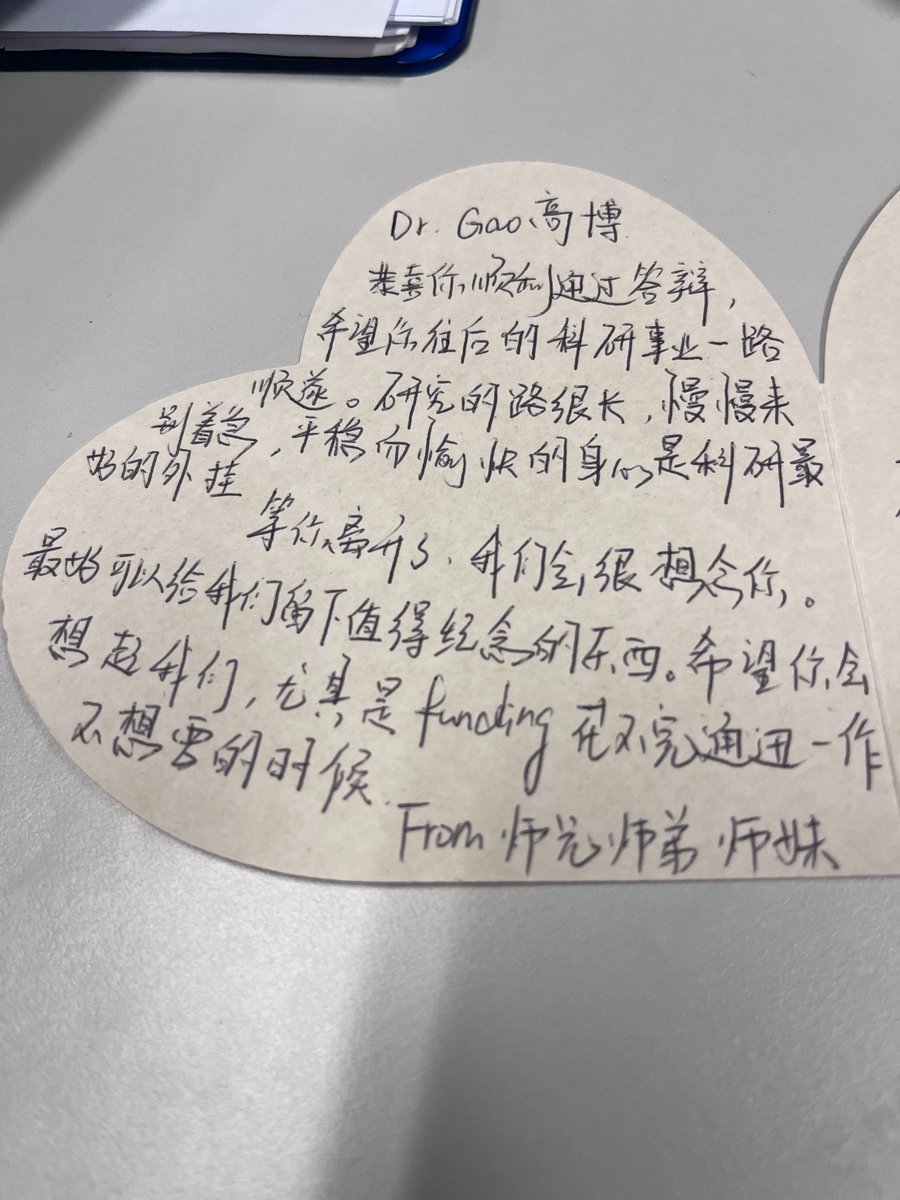 Dr. Gao 高博
恭喜你顺利通过答辩，
希望你往后的科研事业一路
顺遂。研究的路很长，慢慢来
别着急，平稳而愉快的身心是科研最
好的外挂
等你离开了、我们会很想念你，。
最好可以给我们留下值得纪念的东西。希望你会
想起我们，尤其是 funding 花不完通讯一作
不想要的时候.
From 师兄 师弟 师妹